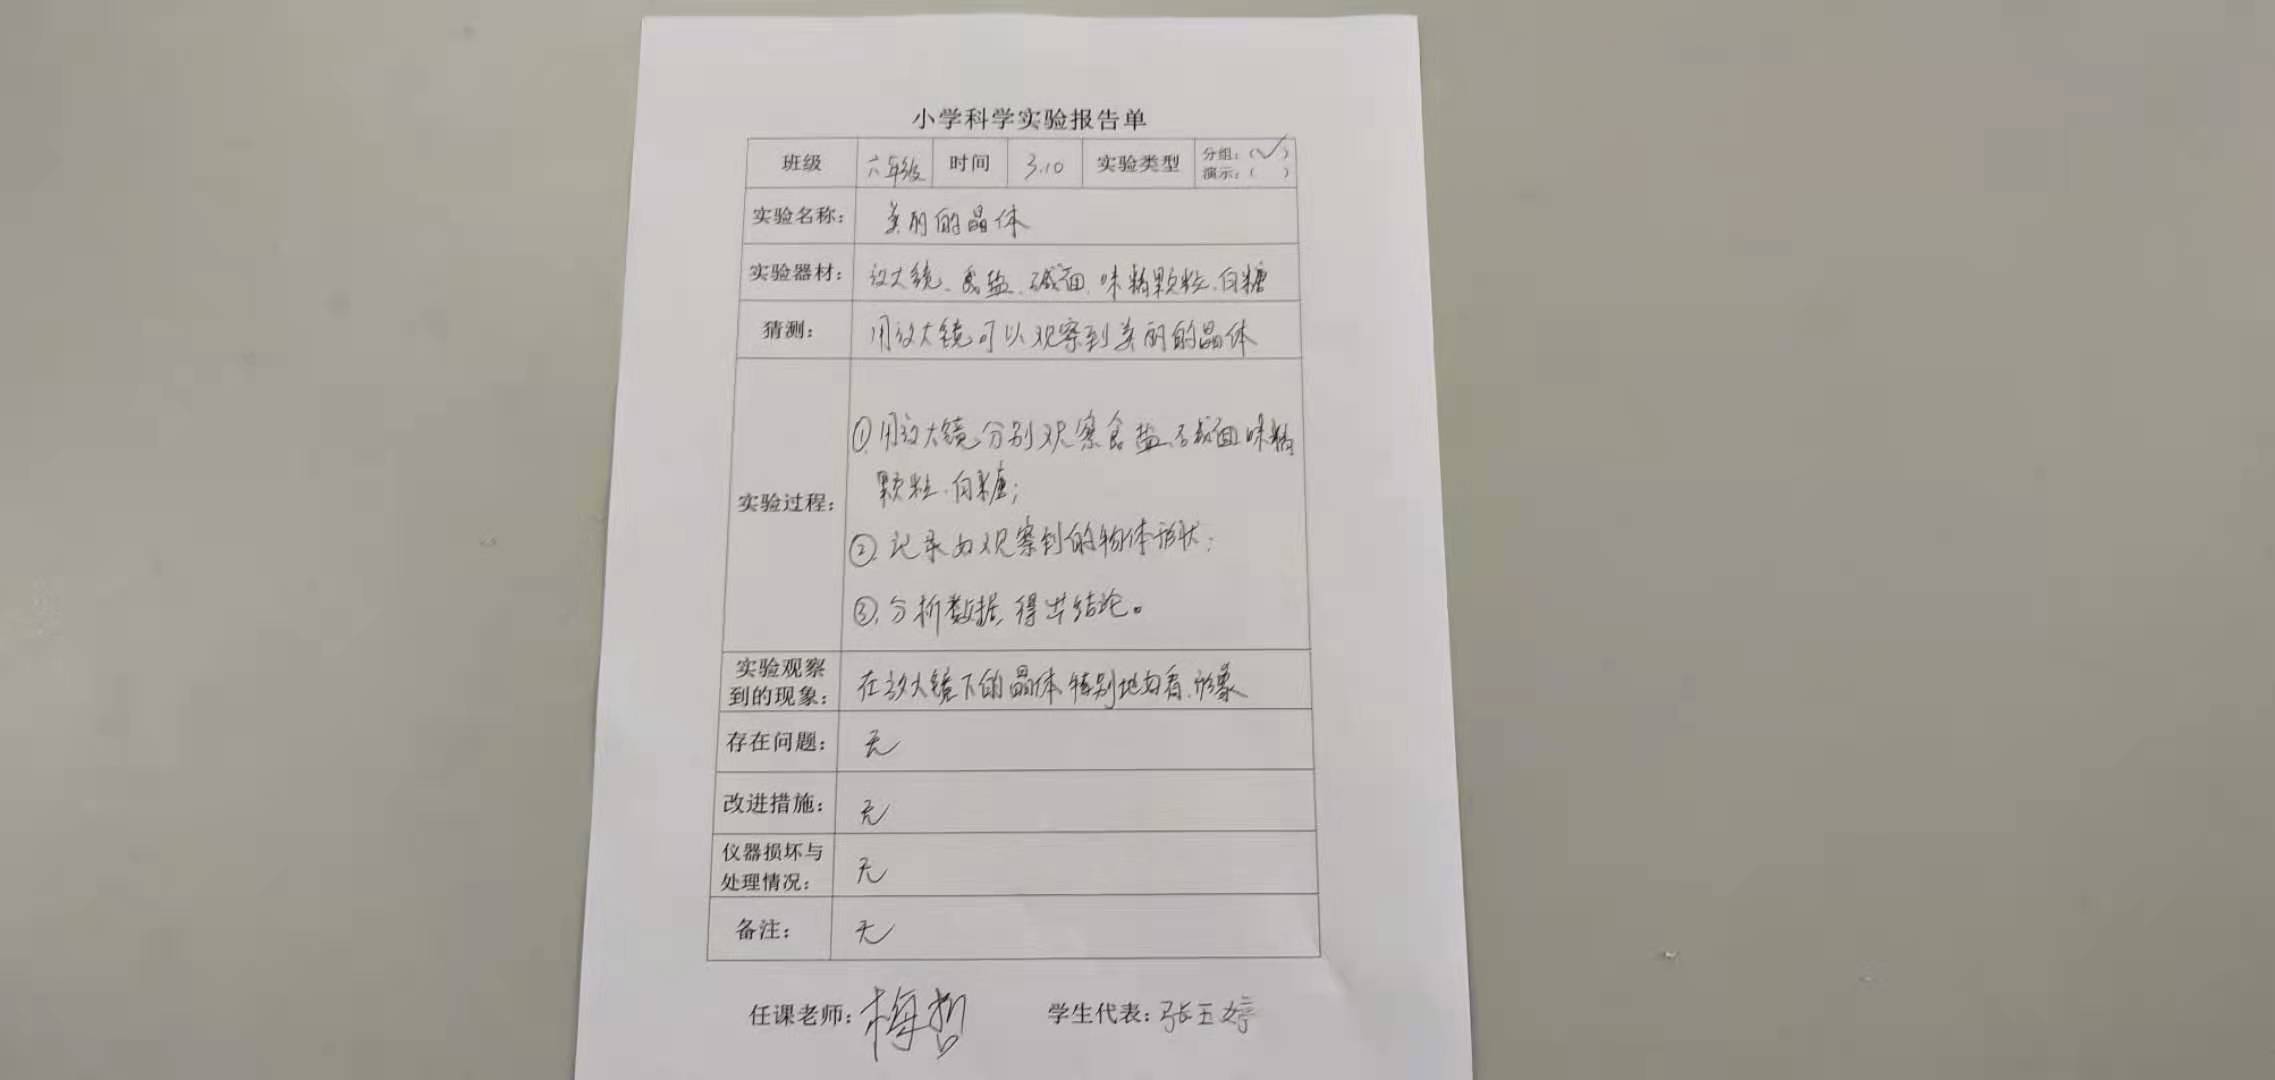 小学科学实验报告单
班级 六年级 时间 3.10 实验类型 分组：(✓)
演示：( )
实验名称： 美丽的晶体
实验器材： 放大镜、食盐、碱面、味精颗粒、白糖
猜测： 用放大镜可以观察到美丽的晶体
①用放大镜分别观察食盐、碱面、味精
颗粒、白糖；
实验过程：
②、记录为观察到的物体形状；
③、分析数据，得出结论。
实验观察
到的现象： 在放大镜下的晶体特别地、形象
存在问题： 无
改进措施： 无
仪器损坏与
处理情况： 无
备注： 无
任课老师：梅哲 学生代表：张玉婷